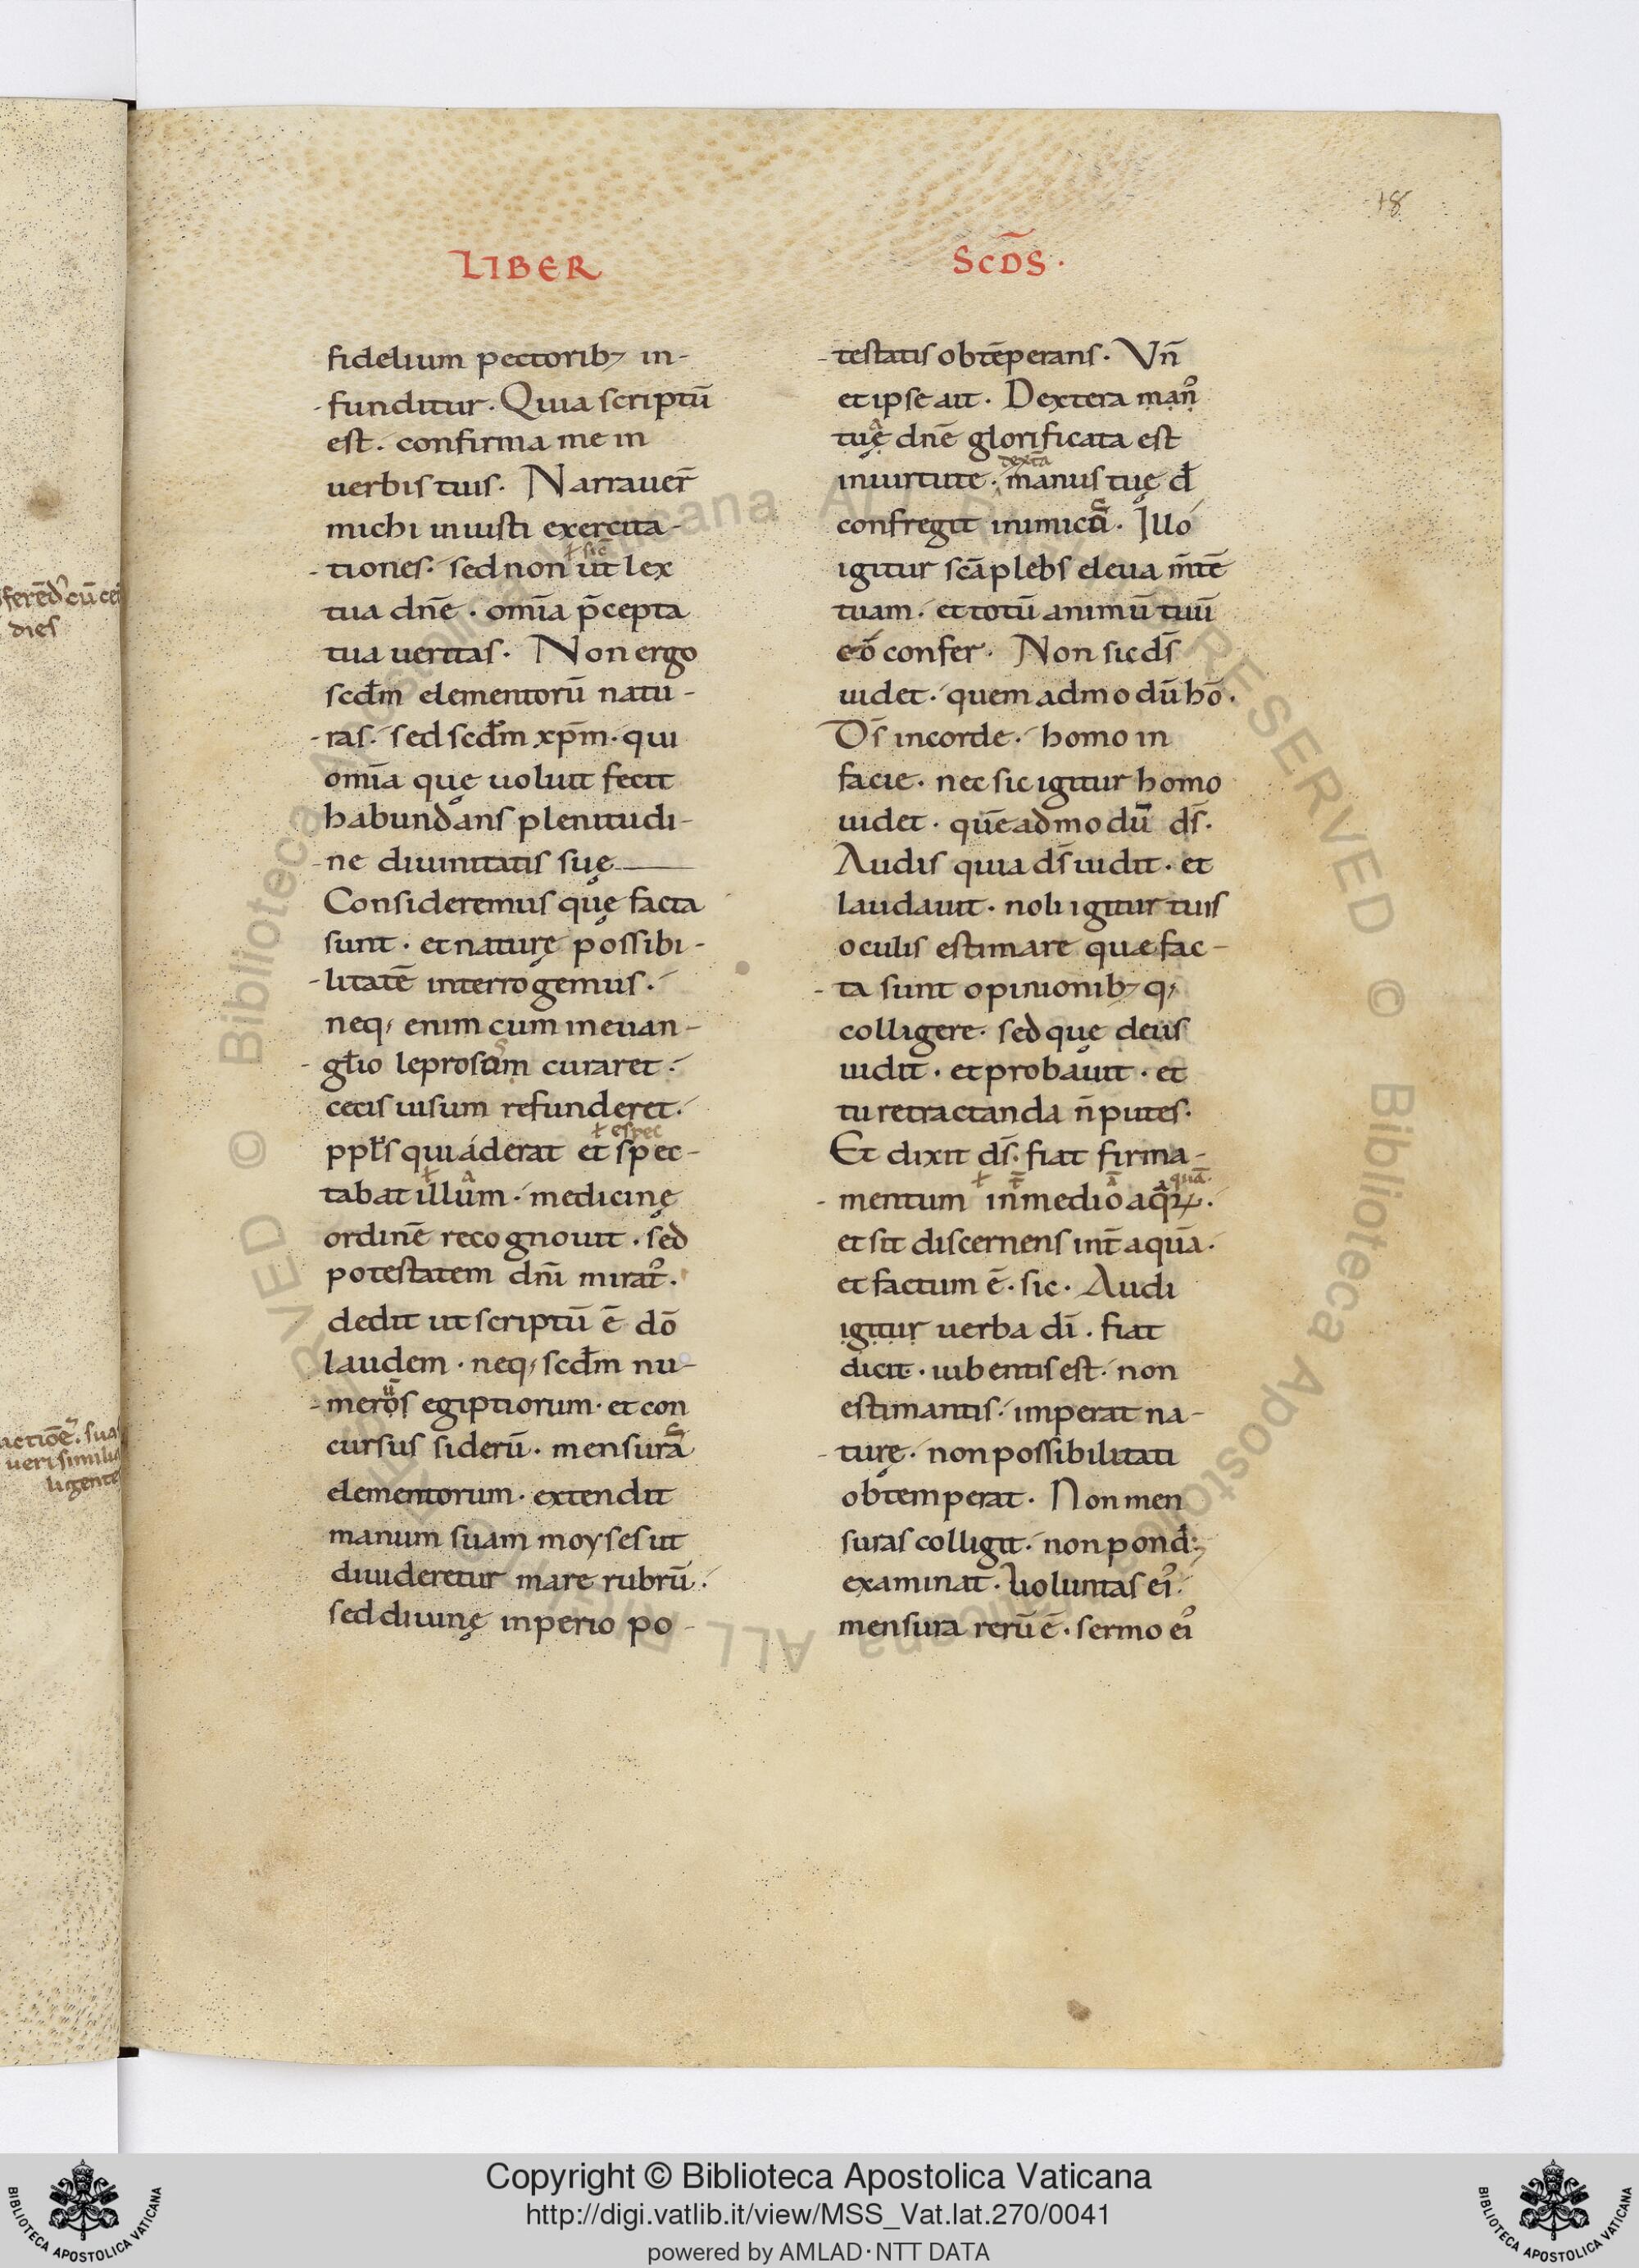 18
LIBER
fidelium pectorib; in-
-funditur. Quia scriptū
est. confirma me in
uerbis tuis. Narrauer̄
michi iniusti exercita-
ł sic̄
-tiones. sed non ut lex
tua dn̄e. om̄ia p̄cepta
tua ueritas. Non ergo
scd̄m elementorū natu-
-ras. sed scd̄m xp̄m. qui
om̄ia quę uoluit fecit
habundans plenitudi-
-ne diuinitatis suę
Consideremus quę facta
sunt. et naturę possibi-
-litatē interrogemus.
neq; enim cum in euan-
-gl̄io leprosum curaret.
cecis uisum refunderet.
ł espec
ppl̄s qui aderat et spec-
tabat illum. medicinę
ordinē recognouit. sed
potestatem dn̄i mirat᷒.
dedit ut scriptū ē dō
laudem. neq; scd̄m nu-
-meros egiptiorum. et con
cursus siderū. mensurā
elementorum. extendit
manum suam moyses ut
diuideretur mare rubrū.
sed diuinę inperio po-
SCD̄S.
-testatis obtēperans. Vn̄
et ipse ait. Dextera man᷒
tuę dn̄e glorificata est
dext̄a
in uirtute. manus tuę d̄
confregit inimicū. Illo
igitur scā plebs eleua m̄tē
tuam. et totū animū tuū
eō confer. Non sic ds̄
uidet. quem admodū hō.
Ds̄ in corde. homo in
facie. nec sic igitur homo
uidet. quēadmodū ds̄.
Audis quia ds̄ uidit. et
laudauit. noli igitur tuis
oculis estimare quæ fac-
-ta sunt opinionib; q;
colligere. sed quę deus
uidit. et probauit. et
tu retractanda n̄ putes.
Et dixit ds̄. fiat firma-
quā.
-mentum in medio aqꝝ.
et sit discernens int̄ aquā.
et factum ē. sic. Audi
igitur uerba dī. fiat
dicit. iubentis est. non
estimantis. imperat na-
-turę. non possibilitati
obtemperat. Non men
suras colligit. non pond;
examinat. Uoluntas ei᷒.
mensura rerū ē. sermo ei᷒
dies
Copyright © Biblioteca Apostolica Vaticana
http://digi.vatlib.it/view/MSS_Vat.lat.270/0041
powered by AMLAD·NTT DATA
BIBLIOTECA APOSTOLICA VATICANA
BIBLIOTECA APOSTOLICA VATICANA
© Biblioteca Apostolica Vaticana ALL RIGHTS RESERVED © Biblioteca Apostolica Vaticana ALL RIGHTS RESERVED